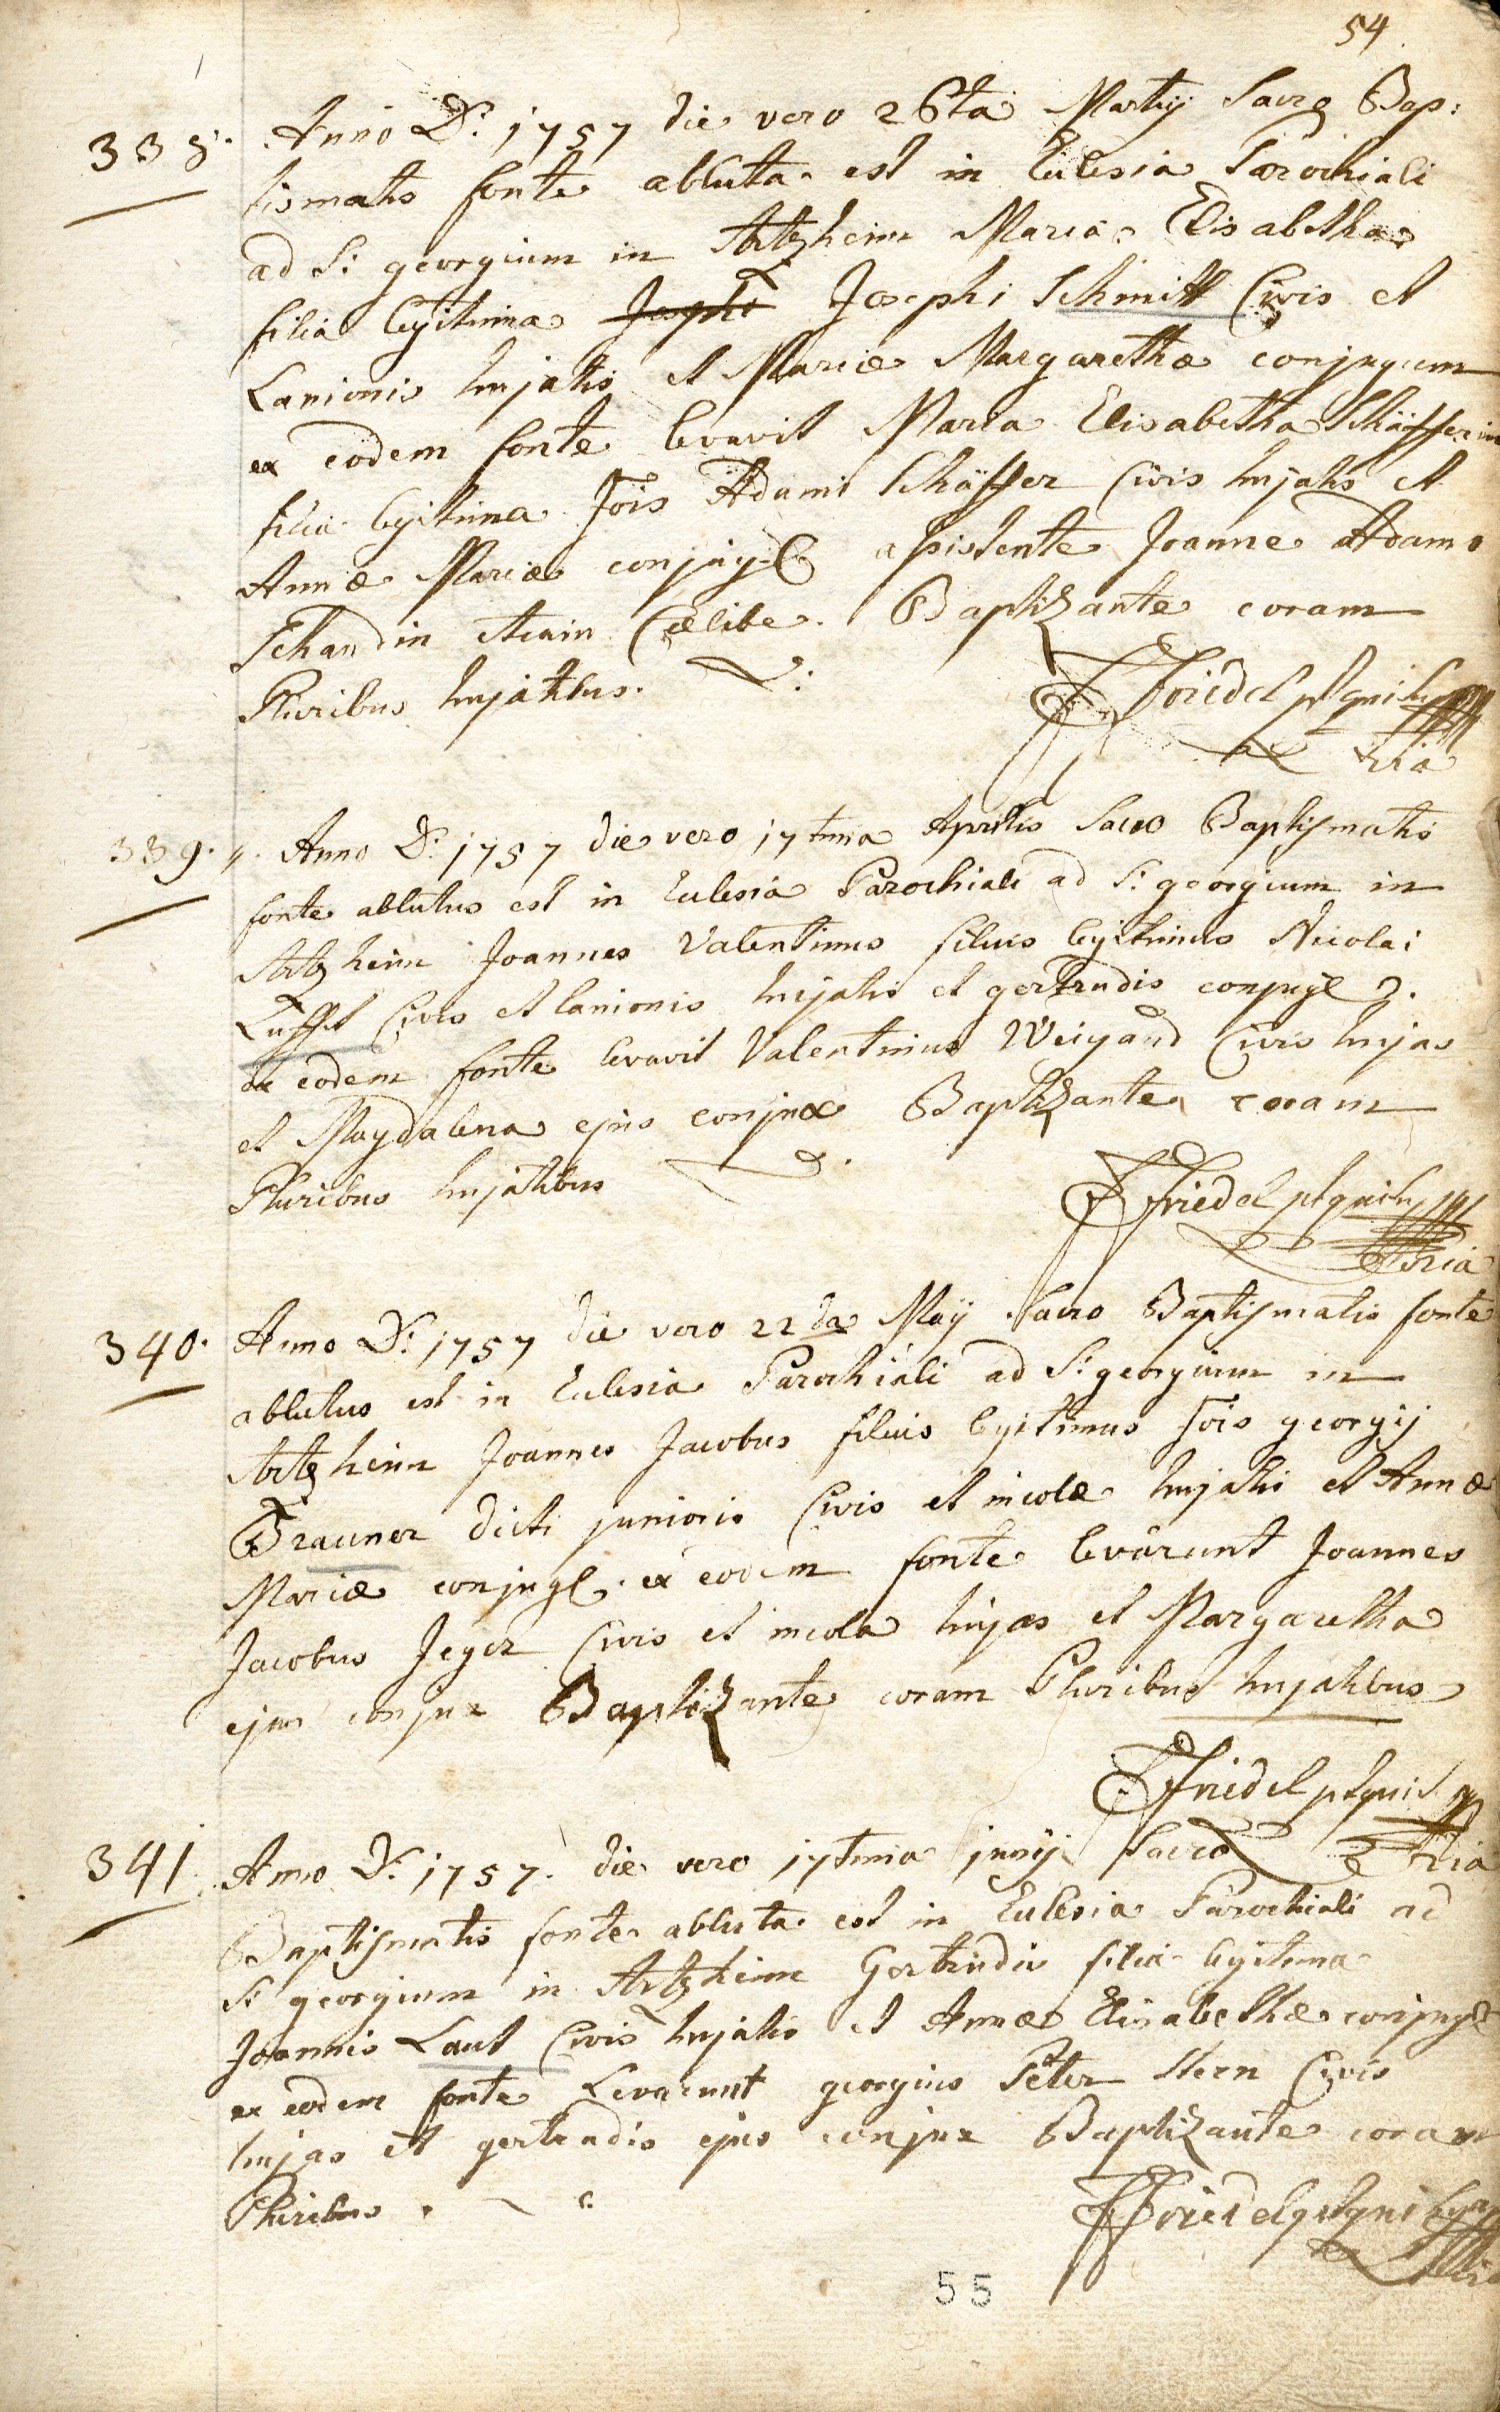 54
338. Anno D: 1757 die vero 26ta Martij Sacro Bap:
tismatis fonte abluta est in Eclesia Parochiali
ad S: georgium in Artzheim Maria Elisabetha
filia legitima Josephi Josephi Schmitt Civis et
Lanionis hujatis et Mariæ Margarethæ conjugum
ex eodem fonte levavit Maria Elisabetha Schäfferin
filia legitima Jois Adami Schäffer Civis hujatis et
Annæ Mariæ conjug: assistente Joanne Adamo
Schandin etiam Cælibe. Baptizante coram
Pluribus hujatibus.
Friedel
339. Anno D: 1757 die vero 17tima Aprilis Sacro Baptismatis
fonte ablutus est in Eclesia Parochiali ad S: georgium in
Artzheim Joannes Valentinus filius legitimus Nicolai
Luffft Civis et lanionis hujatis et gertrudis conjug
ex eodem fonte levavit Valentinus Weigand Civis hujas
et Magdalena ejus conjux Baptizante coram
Pluribus hujatibus
Friedel
340. Anno D: 1757 die vero 22da Maÿ Sacro Baptismatis fonte
ablutus est in Eclesia Parochiali ad S: georgium in
Artzheim Joannes Jacobus filius legitimus Jois georgij
Brauner dicti junioris Civis et incolæ hujatis et Annæ
Mariæ conjug. ex eodem fonte levârunt Joannes
Jacobus Jeger Civis et incola hujas et Margaretha
ejus conjux Baptizante coram Pluribus hujatibus
Friedel
341. Anno D: 1757. die vero 17tima junij Sacro
Baptismatis fonte abluta est in Eclesia Parochiali ad
S: georgium in Artzheim Gertrudis filia legitima
Joannis Laut Civis hujatis et Annæ Elisabethæ conjug
ex eodem fonte Levarunt georgius Peter Stern Civis
hujas et gertrudis ejus conjux Baptizante coram
Pluribus.
Friedel
55